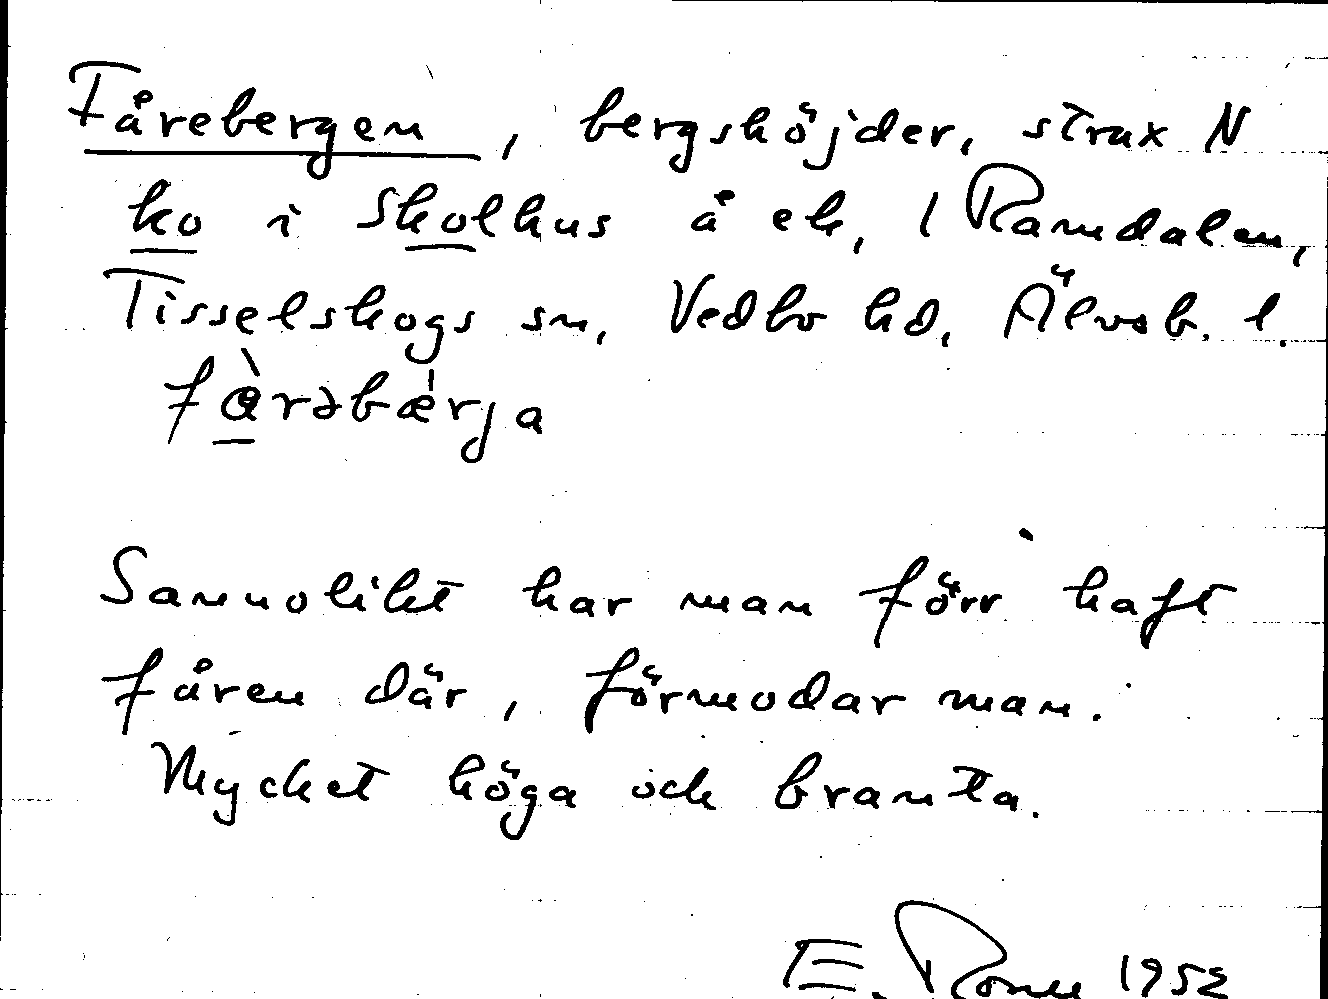 Fårebergen, bergshöjder, strax N
ko i Skolhus å ek, 1 Ramdalen,
Tisselskogs sn, Vedbo hd, Älvsb. l.
fàrəbǽrja
Sannolikt har man förr haft
fåren där, förmodar man.
Mycket höga och branta.
E. 1952